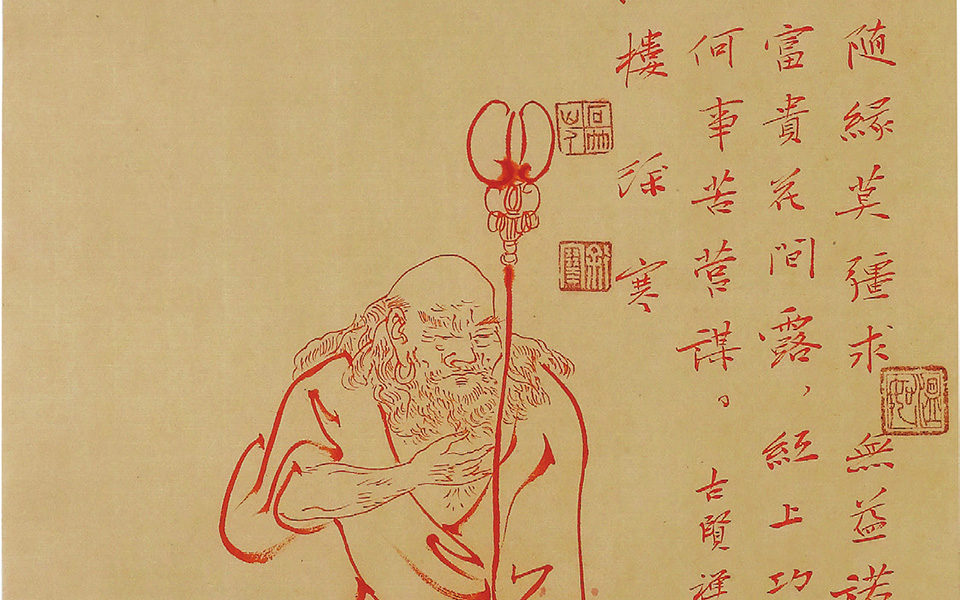 随緣莫彊求 無益諾
富貴花間露，
上功
何事苦營謀。 古賢
樓
寒